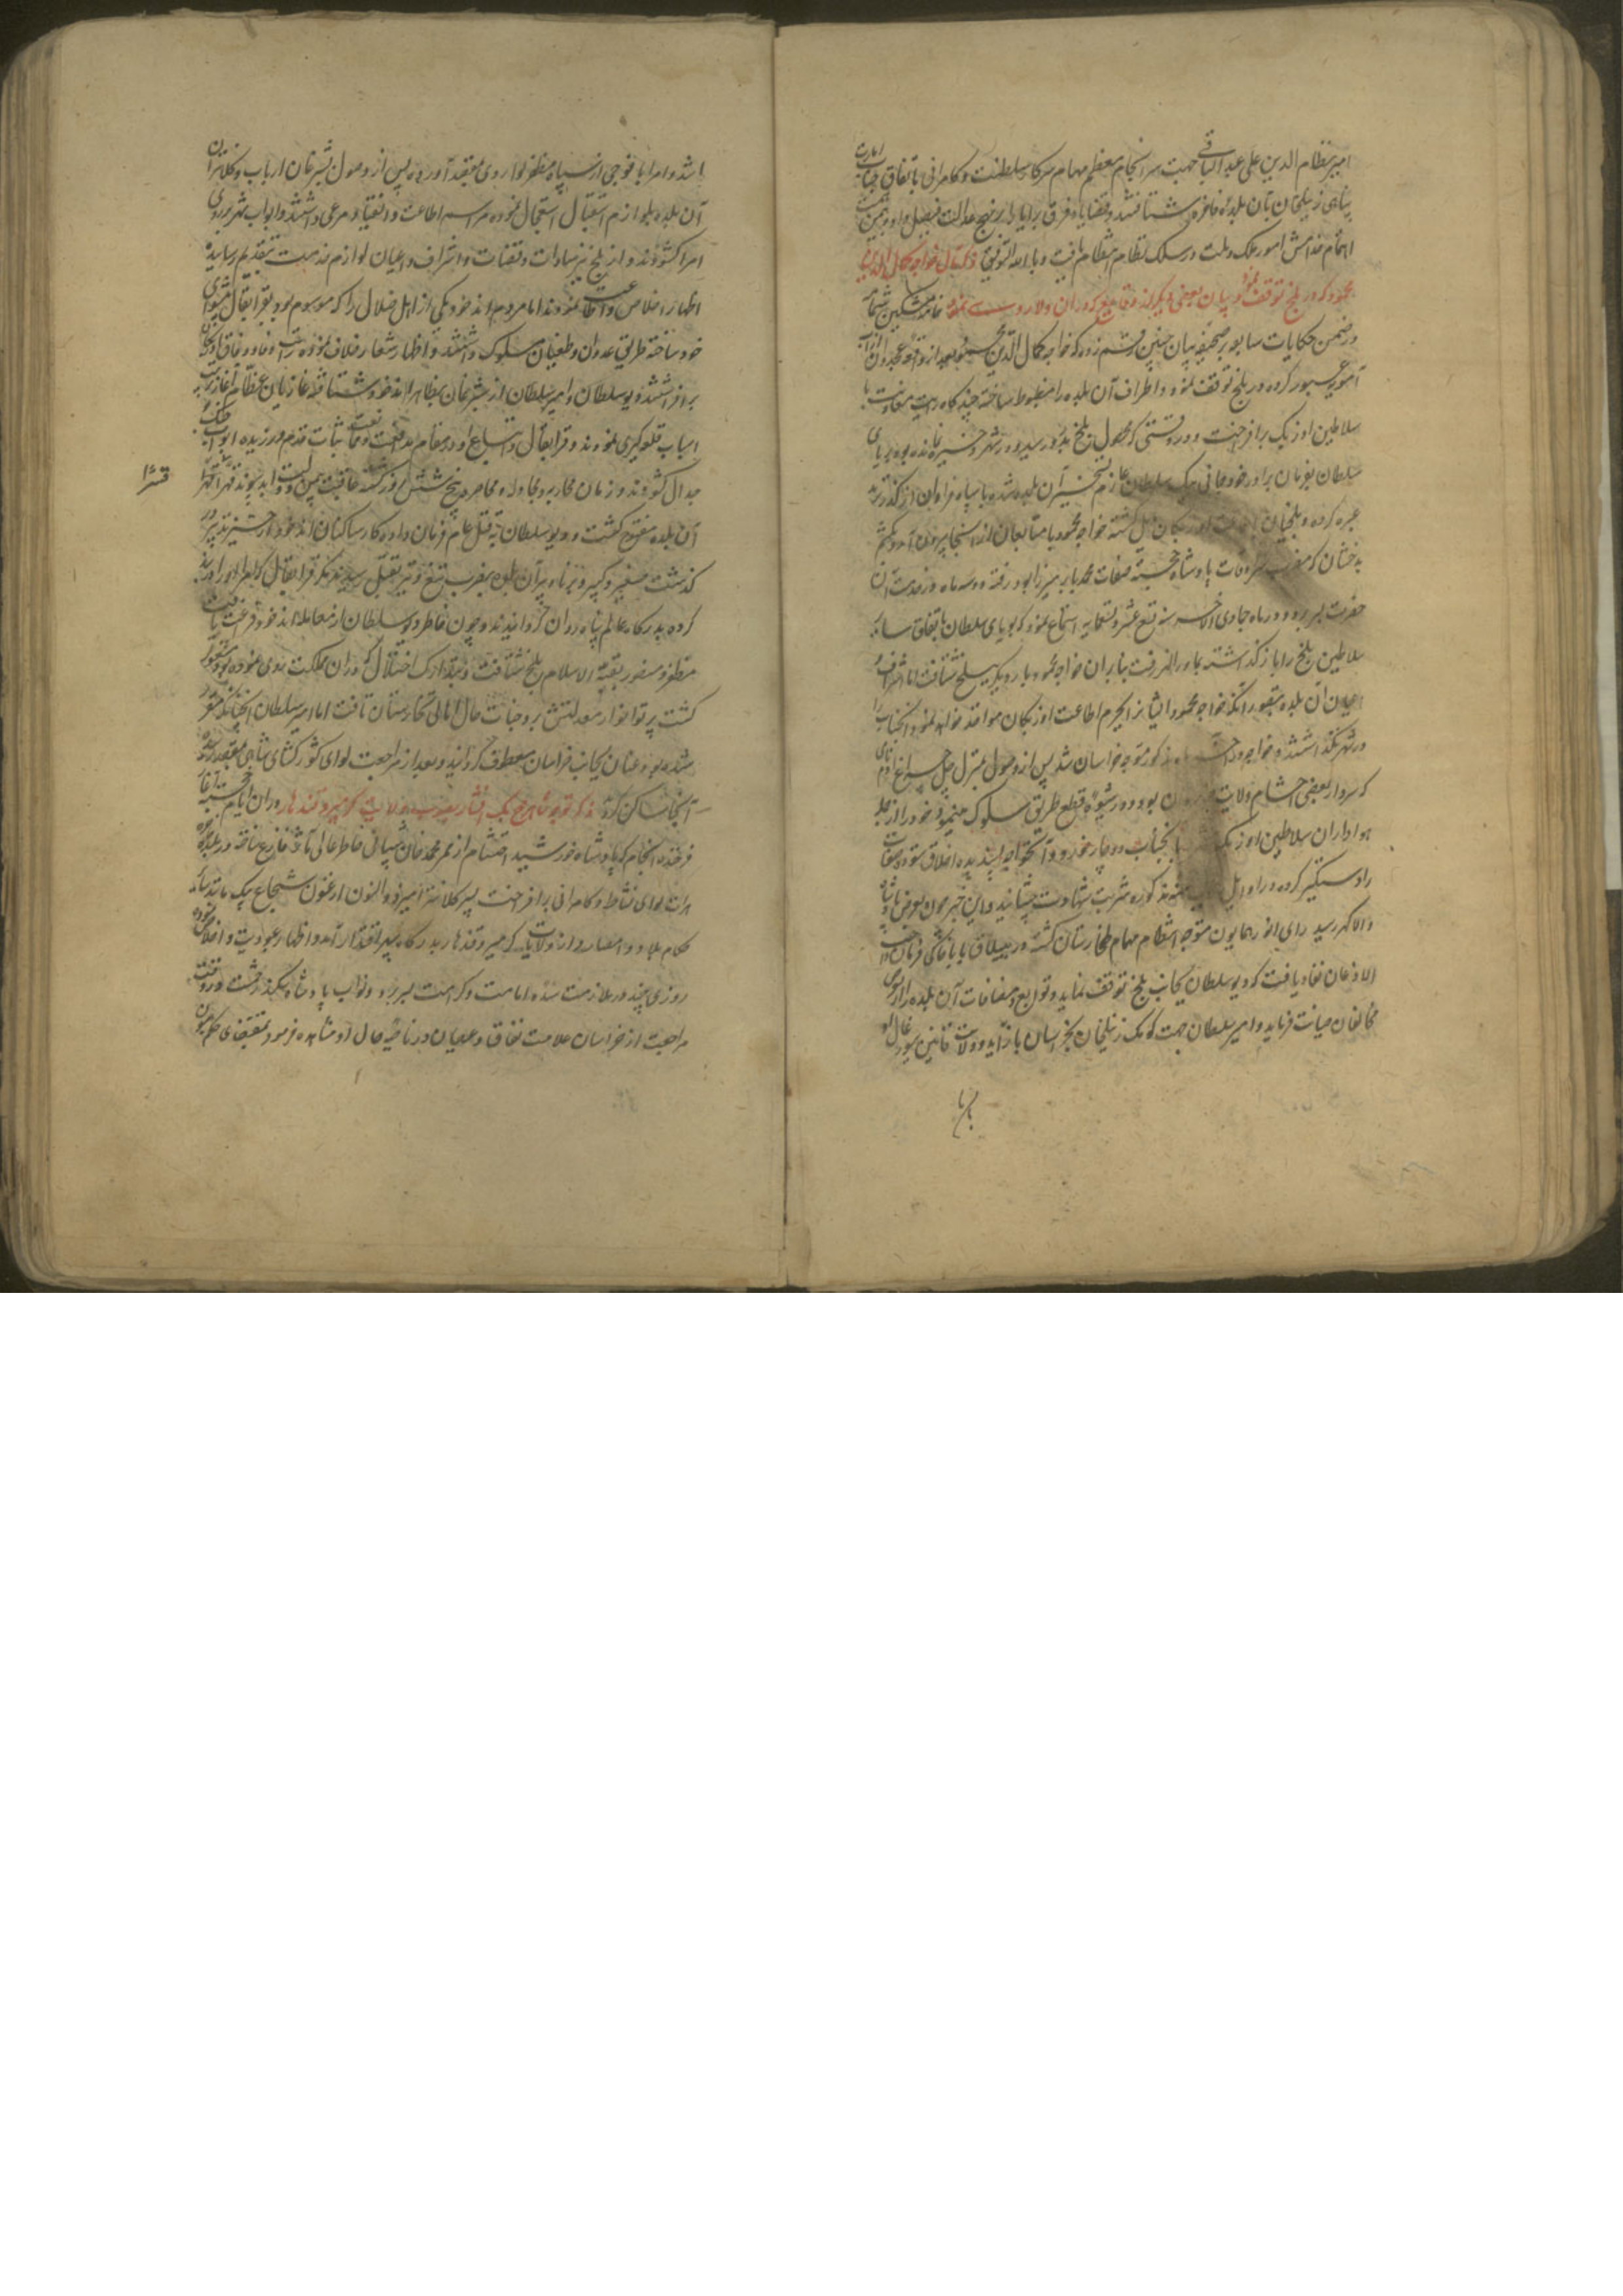 امیر نظام الدین علی عبد الباقی جهت سرانجام معظم مهام سرکار سلطنت و کامرانی باتفاق جناب امارت
پناهی زینلخان بآن بلده فاخره شتافتند و قضایاء فرق برایا را بر نهج عدالت فیصل داده بیمن
اهتمام خدامش امور ملک و ملت در سلک نظام انتظام یافت و بالله التوفیق ذکر خواجه کمال الدین
محمود که در بلخ توقف نمود و بیان بعضی دیگر از وقایع که در آن ولا روی نمود خامه مشکین شمامه
در ضمن حکایات سابق بر صحیفه بیان چنین رقم زده که خواجه کمال الدین محمود بعد از واقعه غجدوان از آب
آمویه عبور کرده در بلخ توقف نمود و اطراف آن بلده را مضبوط ساخته چندگاه رایت مقاومت با
سلاطین اوزبک برافراخت و در وقتی که محصول بلخ بدرو رسید و در شهر ذخیره نمانده بود بریای
سلطان بفرمان برادر خود جانی بیک سلطان عازم تسخیر آن بلده شده با سپاه فراوان از گذر ترمد
عبره کرده و بلخیان اوزبکان مایل گشته خواجه محمود با متابعان از آنجا بیرون آمد و بکشم
بدخشان که مضرب سرادقات پادشاه خجسته صفات محمد بابر میرزا بود رفته دو سه ماه در خدمت آن
حضرت بسر برد و در ماه جمادی الاخر سنه تسع عشر و تسعمایه استماع نمود که بریای سلطان باتفاق سایر
سلاطین بلخ را باز گذاشته بماوراءالنهر رفت بنابران خواجه محمود بار دیگر ببلخ شتافت اما اشراف و
اعیان آن بلده بتصور آنکه خواجه محمود ایشان را بجرم اطاعت اوزبکان مواخذه خواهد نمود آنجناب را
در شهر نگذاشتند و خواجه مذکور متوجه خراسان شد پس از وصول بمنزل چل چراغ آدم نای
که سردار بعضی احشام ولایت بود و در شیوه قطع طریق سلوک مینمود و خود را از جمله
هواداران سلاطین اوزبک بآنجناب دوچار خورد و آن خواجه پسندیده اخلاق ستوده صفات
را دستگیر کرده در اوایل مذکوره شربت شهادت چشانید و این خبر چون بعرض پادشاه
والا گهر رسید رای انور همایون متوجه انتظام مهام طخارستان گشته در ییلاق بابا خاکی فرمان واجب
الاذعان نفاد یافت که دیو سلطان بجانب بلخ توقف نماید و توابع و مضافات آن بلده را از تعرض
مخالفان صیانت فرماید و امیر سلطان جهت کومک زینلخان بخراسان باز آید و ولایت قاین سیورغال او
باشد
باشد و امرا با فوجی از سپاه مظفر لوا روی بمقصد آورده پس از وصول بشبرغان ارباب و کلانتران
آن بلده بلوازم استقبال استعجال نموده مراسم اطاعت و انقیاد مرعی داشتند و ابواب شهر بر روی
امرا گشودند و از بلخ نیز سادات و قضات و اشراف و اعیان لوازم خدمت بتقدیم رسانیده
اظهار اخلاص و اطاعت نمودند اما مردم اندخود یکی از اهل ضلال را که موسوم بود بقرا بقال پیشوای
خود ساخته طریق عدوان و طغیان مسلوک داشتند و اظهار شعار خلاف نموده رایت عناد و نفاق
برافراشتند دیو سلطان و امیر سلطان از شبرغان بظاهر اندخود شتافته غازیان عظام آغاز ترتیب
اسباب قلعه گیری نمودند و قرا بقال و اتباع او در مقام مدافعت و ممانعت ثبات قدم ورزیده ابواب جنگ و
جدال گشودند و زمان محاربه و مجادله و محاصره پنج شش روز گشته عاقبت بیمن دولت ابد پیوند قهرا قسرا
آن بلده مفتوح گشت و دیو سلطان بقتل عام فرمان داده کار ساکنان اندخود از حیز تدبیر در
گذشت صغیر و کبیر و برنا و پیر آن بلده بضرب تیغ و تیر بقتل رسیدند مگر قرا بقال که امرا او را در بند
کرده بدرگاه عالم پناه روان گردانیدند و چون خاطر دیو سلطان از معامله اندخود فراغت یافت
مظفر و منصور بقبة الاسلام بلخ شتافت و بتدارک اختلال که در آن مملکت روی نموده بود مشغول
گشت پرتو انوار معدلتش بر وجنات حال اهالی تخارستان تافت اما امیر سلطان آنچنانکه مقرر
شده بود عنان بجانب خراسان معطوف گردانید و بعد از مراجعت لوای کشورگشای شاهی بمقصد رسیده
آنجا ساکن گردید ذکر توجه شاهرخ بیک افشار بصوب ولایت گرمسیر و قندهار در آن ایام خجسته آغاز
فرخنده انجام که پادشاه خورشید احتشام از مهم محمد خان شیبانی خاطر عالی مآثر فارغ ساخته در بلده
هرات لوای نشاط و کامرانی برافراخت پسر کلانتر امیر ذوالنون ارغون شجاع بیک مانند سایر
حکام بلاد و امصار از ولایت گرمسیر و قندهار بدرگاه سپهر اقتدار آمد و اظهار عبودیت و اخلاص نموده
روزی چند در ملازمت سده امامت و کرامت بسر برد و نواب پادشاه سکندر حشمت در وقت
مراجعت از خراسان علامت نفاق و عصیان در ناصیه حال او مشاهده فرمود بمقتضای حکم همایون
قسرا